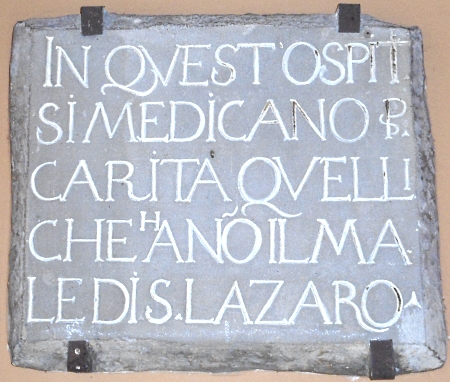 IN QVEST'OSPIT.
SI MEDICANO P.
CARITA QVELLI
CHE HANÕ IL MA
LE DI S. LAZARO